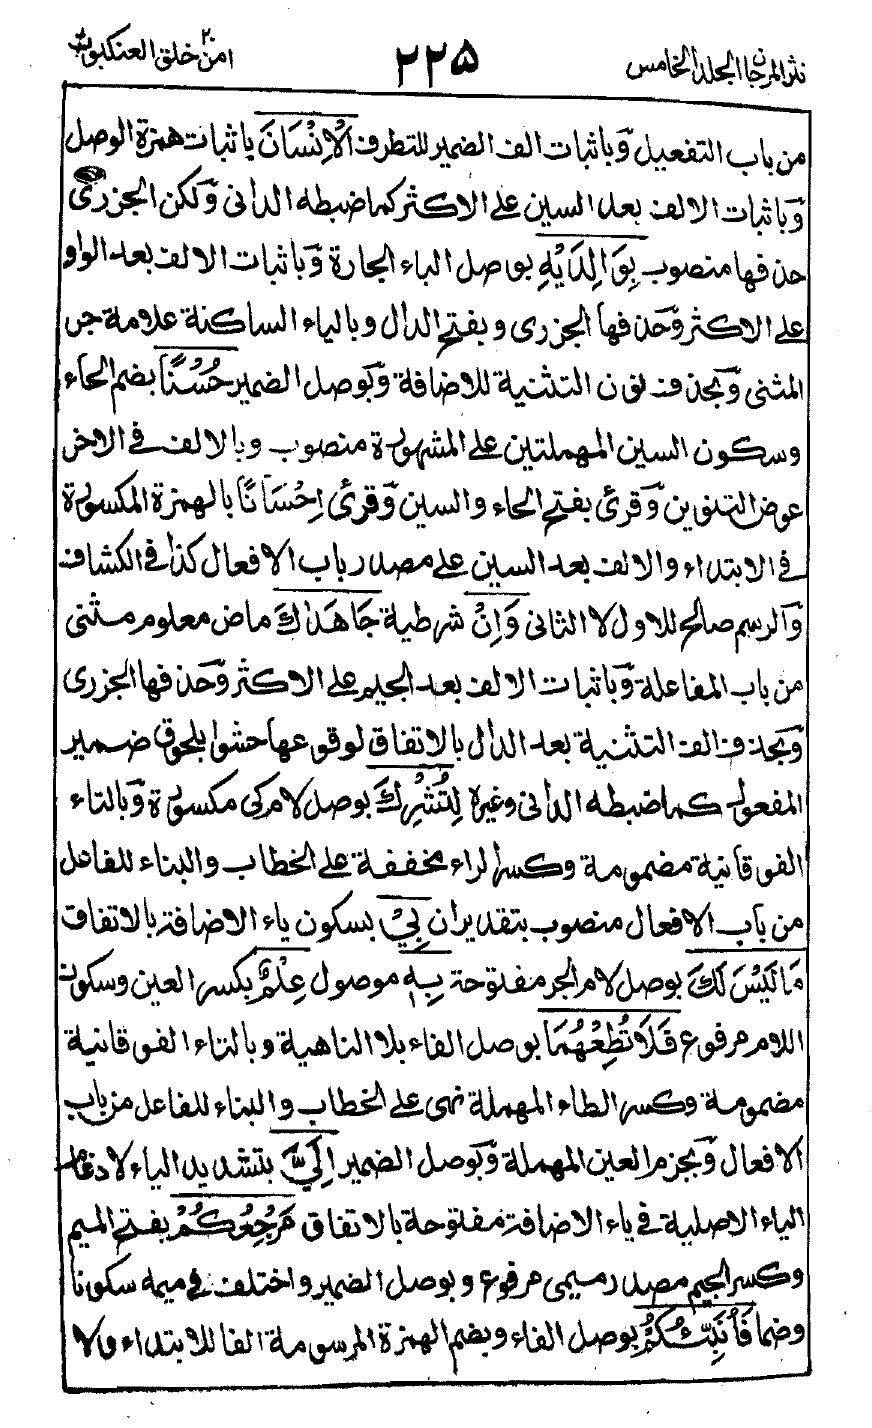 نثر المرجان المجلد الخامس
٢٢٥
امن خلق ٢٠ العنكبوت
من باب التفعيل وباثبات الف الضمير للتطرف الْاِنْسَانَ باثبات همزة الوصل
وباثبات الالف بعد السين على الاكثر كما ضبطه الدانى ولكن الجزرى
حذفها منصوب بِوَالِدَيْهِ بوصل الباء الجارة وباثبات الالف بعد الواو
على الاكثر وحذفها الجزرى وبفتح الدال وبالياء الساكنة علامة جر
المثنى وبحذف نون التثنية للاضافة وبوصل الضمير حُسْنًا بضم الحاء
وسكون السين المهملتين على المشهورة منصوب وبالالف فى الاخر
عوض التنوين وقرئ بفتح الحاء والسين وقرئ اِحْسَانًا بالهمزة المكسورة
فى الابتداء والالف بعد السين على مصدر باب الافعال كذا فى الكشاف
والرسم صالح للاول لا الثانى وَاِنْ شرطية جَاهَدٰكَ ماض معلوم مثنى
من باب المفاعلة وباثبات الالف بعد الجيم على الاكثر وحذفها الجزرى
وبحذف الف التثنية بعد الدال بالاتفاق لوقوعها حشوا بلحوق ضمير
المفعول كما ضبطه الدانى وغيره لِتُشْرِكَ بوصل لام كى مكسورة وبالتاء
الفوقانية مضمومة وكسر الراء مخففة على الخطاب والبناء للفاعل
من باب الافعال منصوب بتقدير ان بِيْ بسكون ياء الاضافة بالاتفاق
مَا لَيْسَ لَكَ بوصل لام الجر مفتوحة بِهٖ موصول عِلْمٌ بكسر العين وسكون
اللام مرفوع فَلَا تُطِعْهُمَا بوصل الفاء بلا الناهية وبالتاء الفوقانية
مضمومة وكسر الطاء المهملة نهى على الخطاب والبناء للفاعل من باب
الافعال وبجزم العين المهملة وبوصل الضمير اِلَيَّ بتشديد الياء لادغام
الياء الاصلية فى ياء الاضافة مفتوحة بالاتفاق مَرْجِعُكُمْ بفتح الميم
وكسر الجيم مصدر ميمى مرفوع وبوصل الضمير واختلف فى ميمه سكونا
وضما فَاُنَبِّئُكُمْ بوصل الفاء وبضم الهمزة المرسومة الفا للابتداء ولا